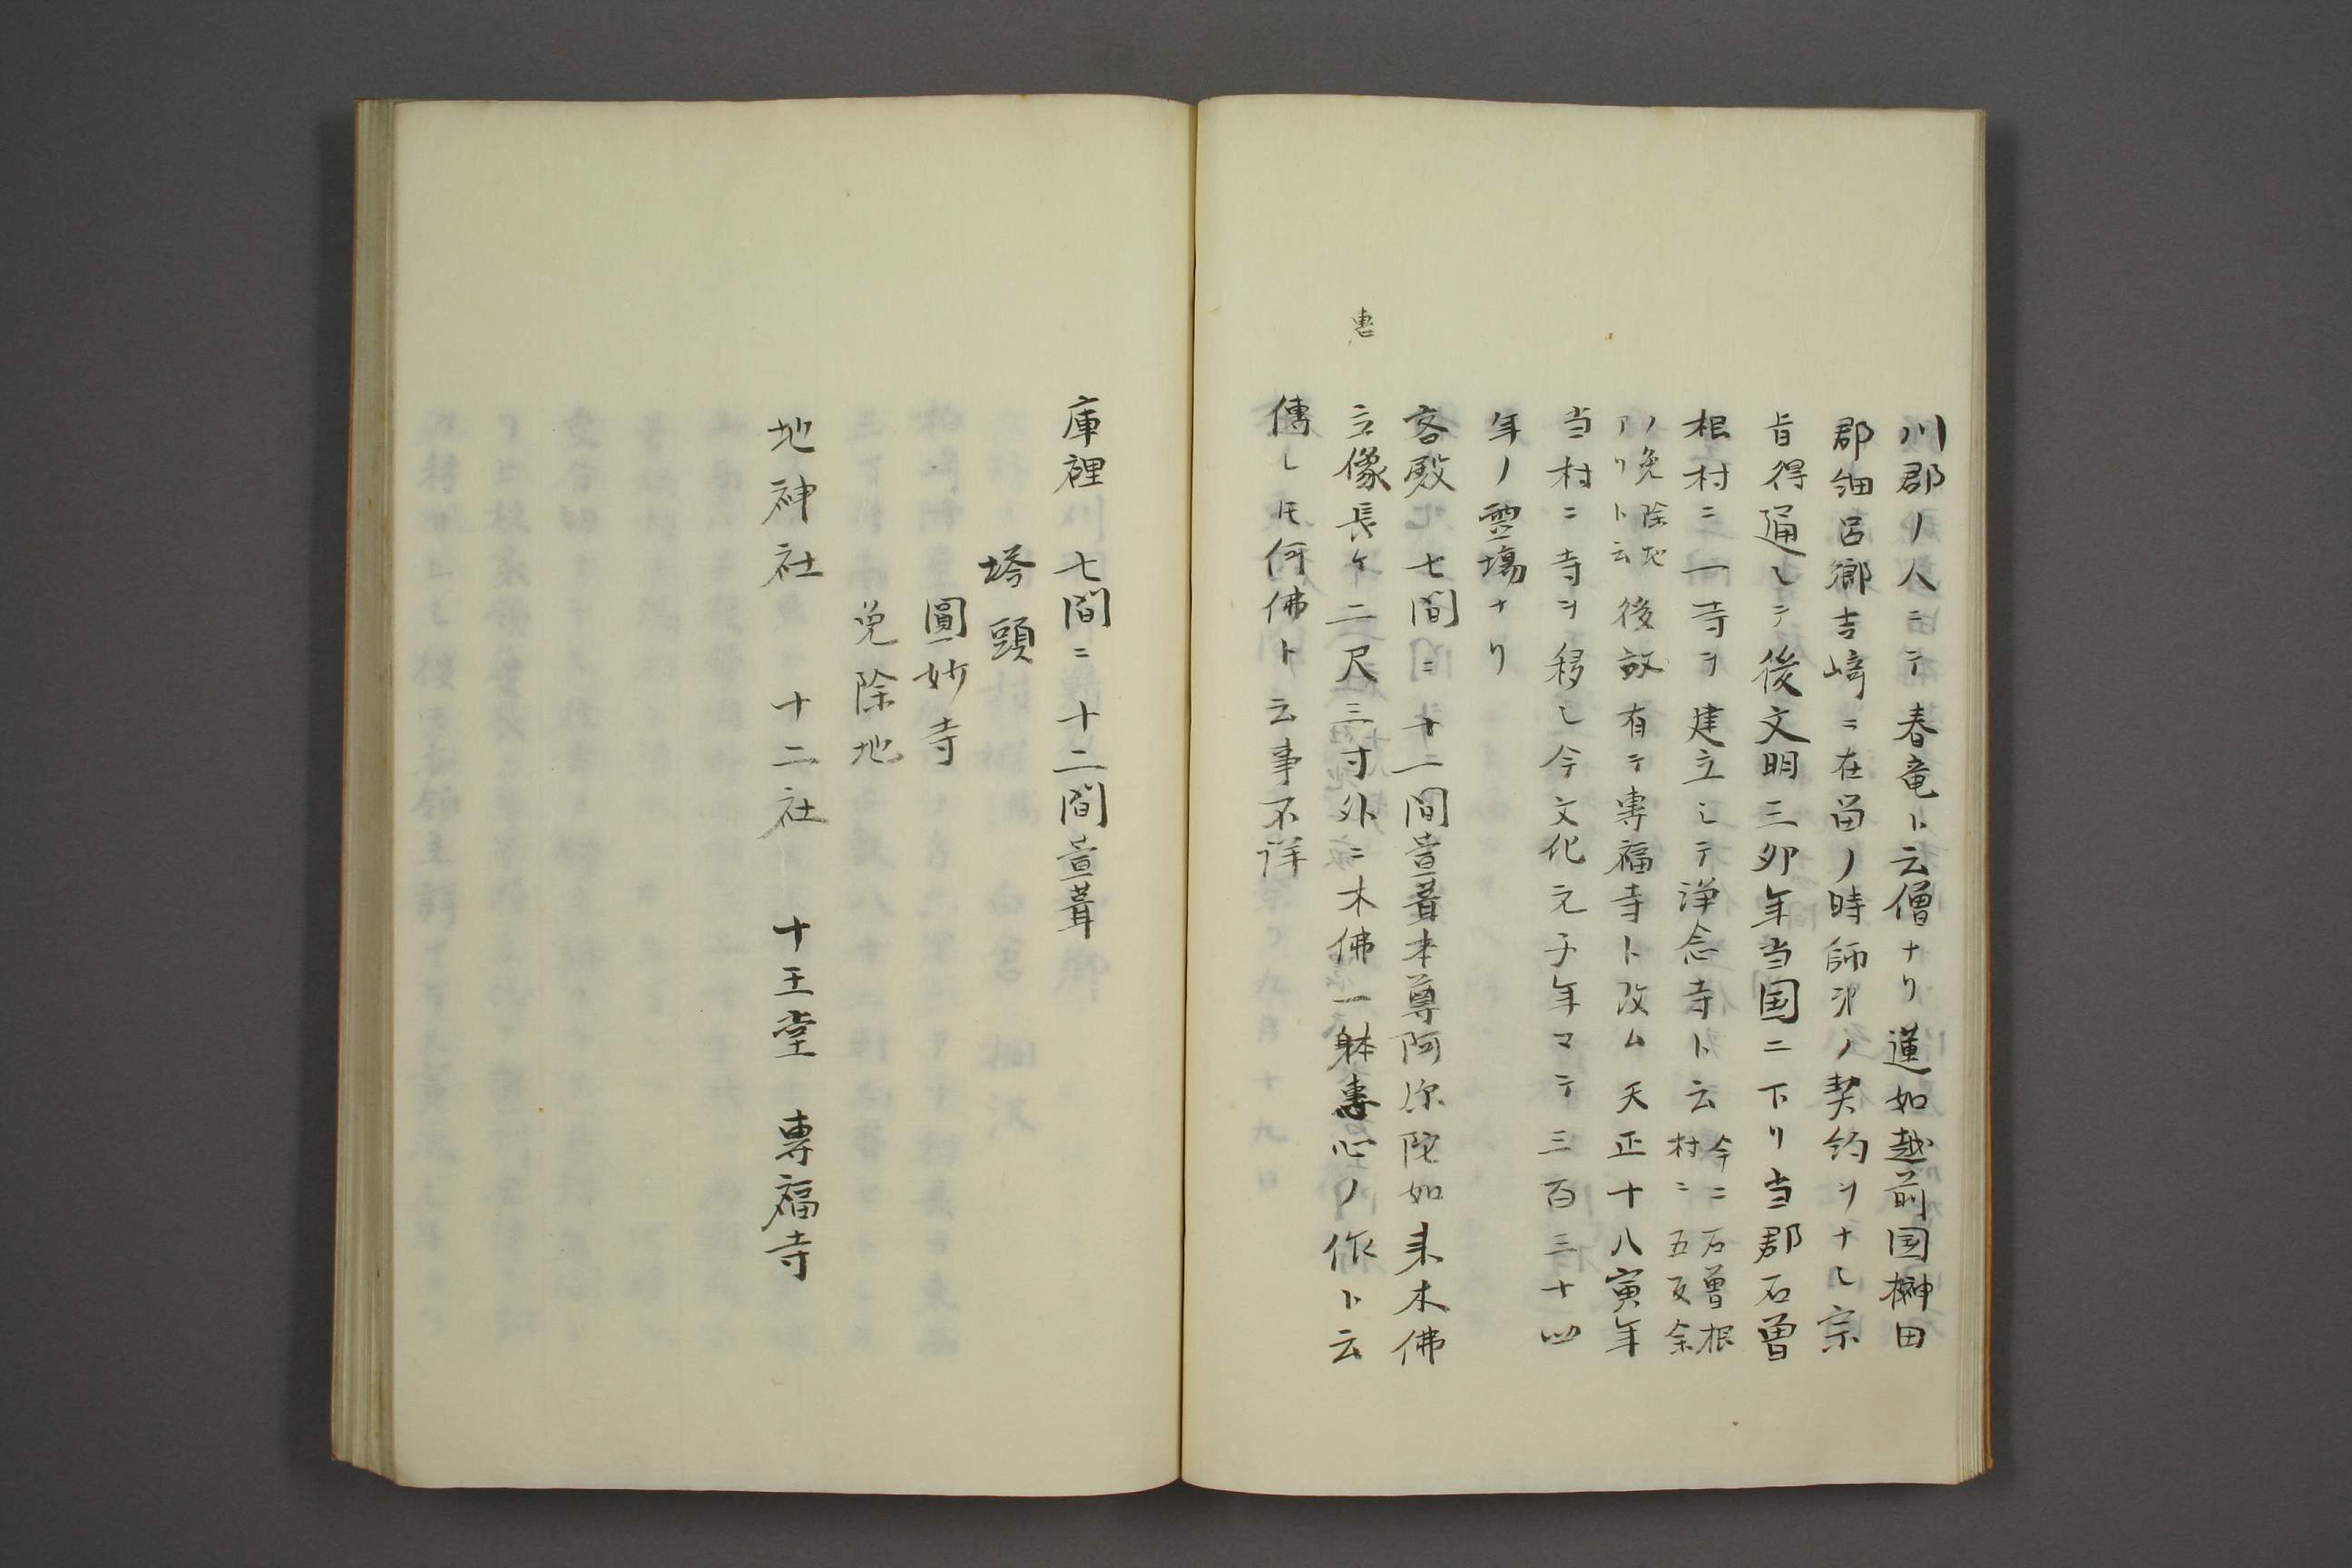 川郡ノ人ニテ春竜ト云僧ナリ蓮如越前国榊田
郡細呂郷吉﨑ニ在留ノ時師弟ノ契約ヲナシ宗
旨得通シテ後文明三夘年当国ニ下リ当郡石曽
根村ニ一寺ヲ建立シテ浄念寺ト云今ニ石曽根
村ニ五反余
ノ免除地
アリト云後故有テ専福寺ト改ム天正十八寅年
当村ニ寺ヲ移シ今文化元子年マテ三百三十四
年ノ霊場ナリ
客殿七間ニ十一間萱葺本尊阿弥陀如来木佛
恵
立像長ケ二尺三寸外ニ木佛一躰恵心ノ作ト云
傳レ𪜈何佛ト云事不詳
庫裡七間ニ十二間萱葺
塔頭
圓妙寺
免除地
地神社 十二社 十王堂 専福寺